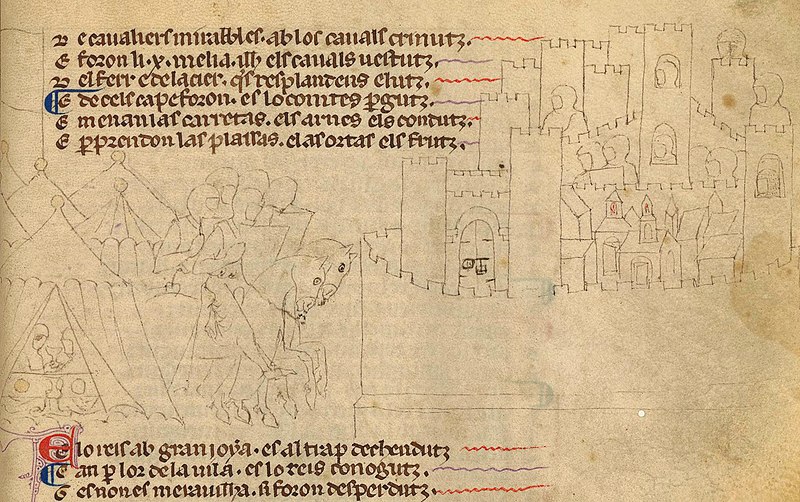 D e caualiers mirables. ab los cauals crinutz.
E foron li .x. melia .iiij. els cauals uestutz.
D el ferr e delacier. q̃s resplandens e lutz.
E de cels cape foron. es lo comtes ꝑgutz.
E menan las carretas. els arnes els condutz.
E ꝑprendon las plassas. elas ortas els frutz.
E lo reis ab gran ioya. es al trap dechendutz
E an ꝑ lor de la uila. es lo reis conogutz.
E es non es merauilha. si foron desperdutz.